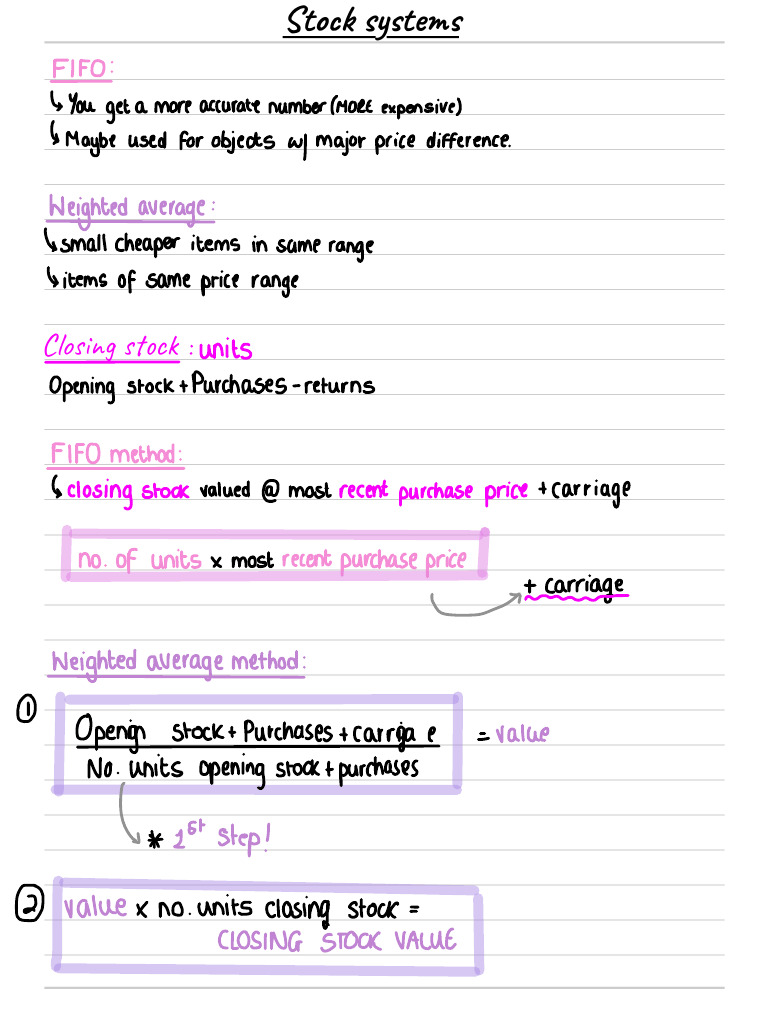 Stock systems
FIFO:
↳ You get a more accurate number (MORE expensive)
↳ Maybe used for objects w/ major price difference.
Weighted average:
↳ small cheaper items in same range
↳ items of same price range
Closing stock : units
Opening stock + Purchases - returns
FIFO method:
↳ closing stock valued @ most recent purchase price + carriage
no. of units x most recent purchase price
+ carriage
Weighted average method:
① Openign stock + Purchases + carrga e = value
No. units opening stock + purchases
* 1st step!
② value x no. units closing stock =
CLOSING STOCK VALUE